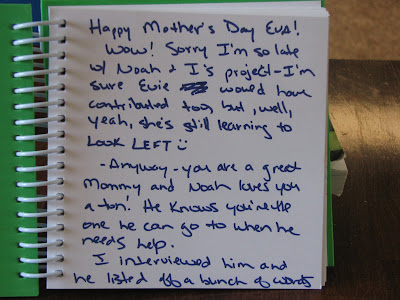 Happy Mother's Day Eva!
Wow! Sorry I'm so late
w/ Noah & I's project - I'm
sure Evie would have
contributed too, but, well,
yeah, she's still learning to
Look LEFT
- Anyway - you are a great
Mommy and Noah loves you
a ton! He knows you're the
one he can go to when he
needs help.
I interviewed him and
he listed off a bunch of words